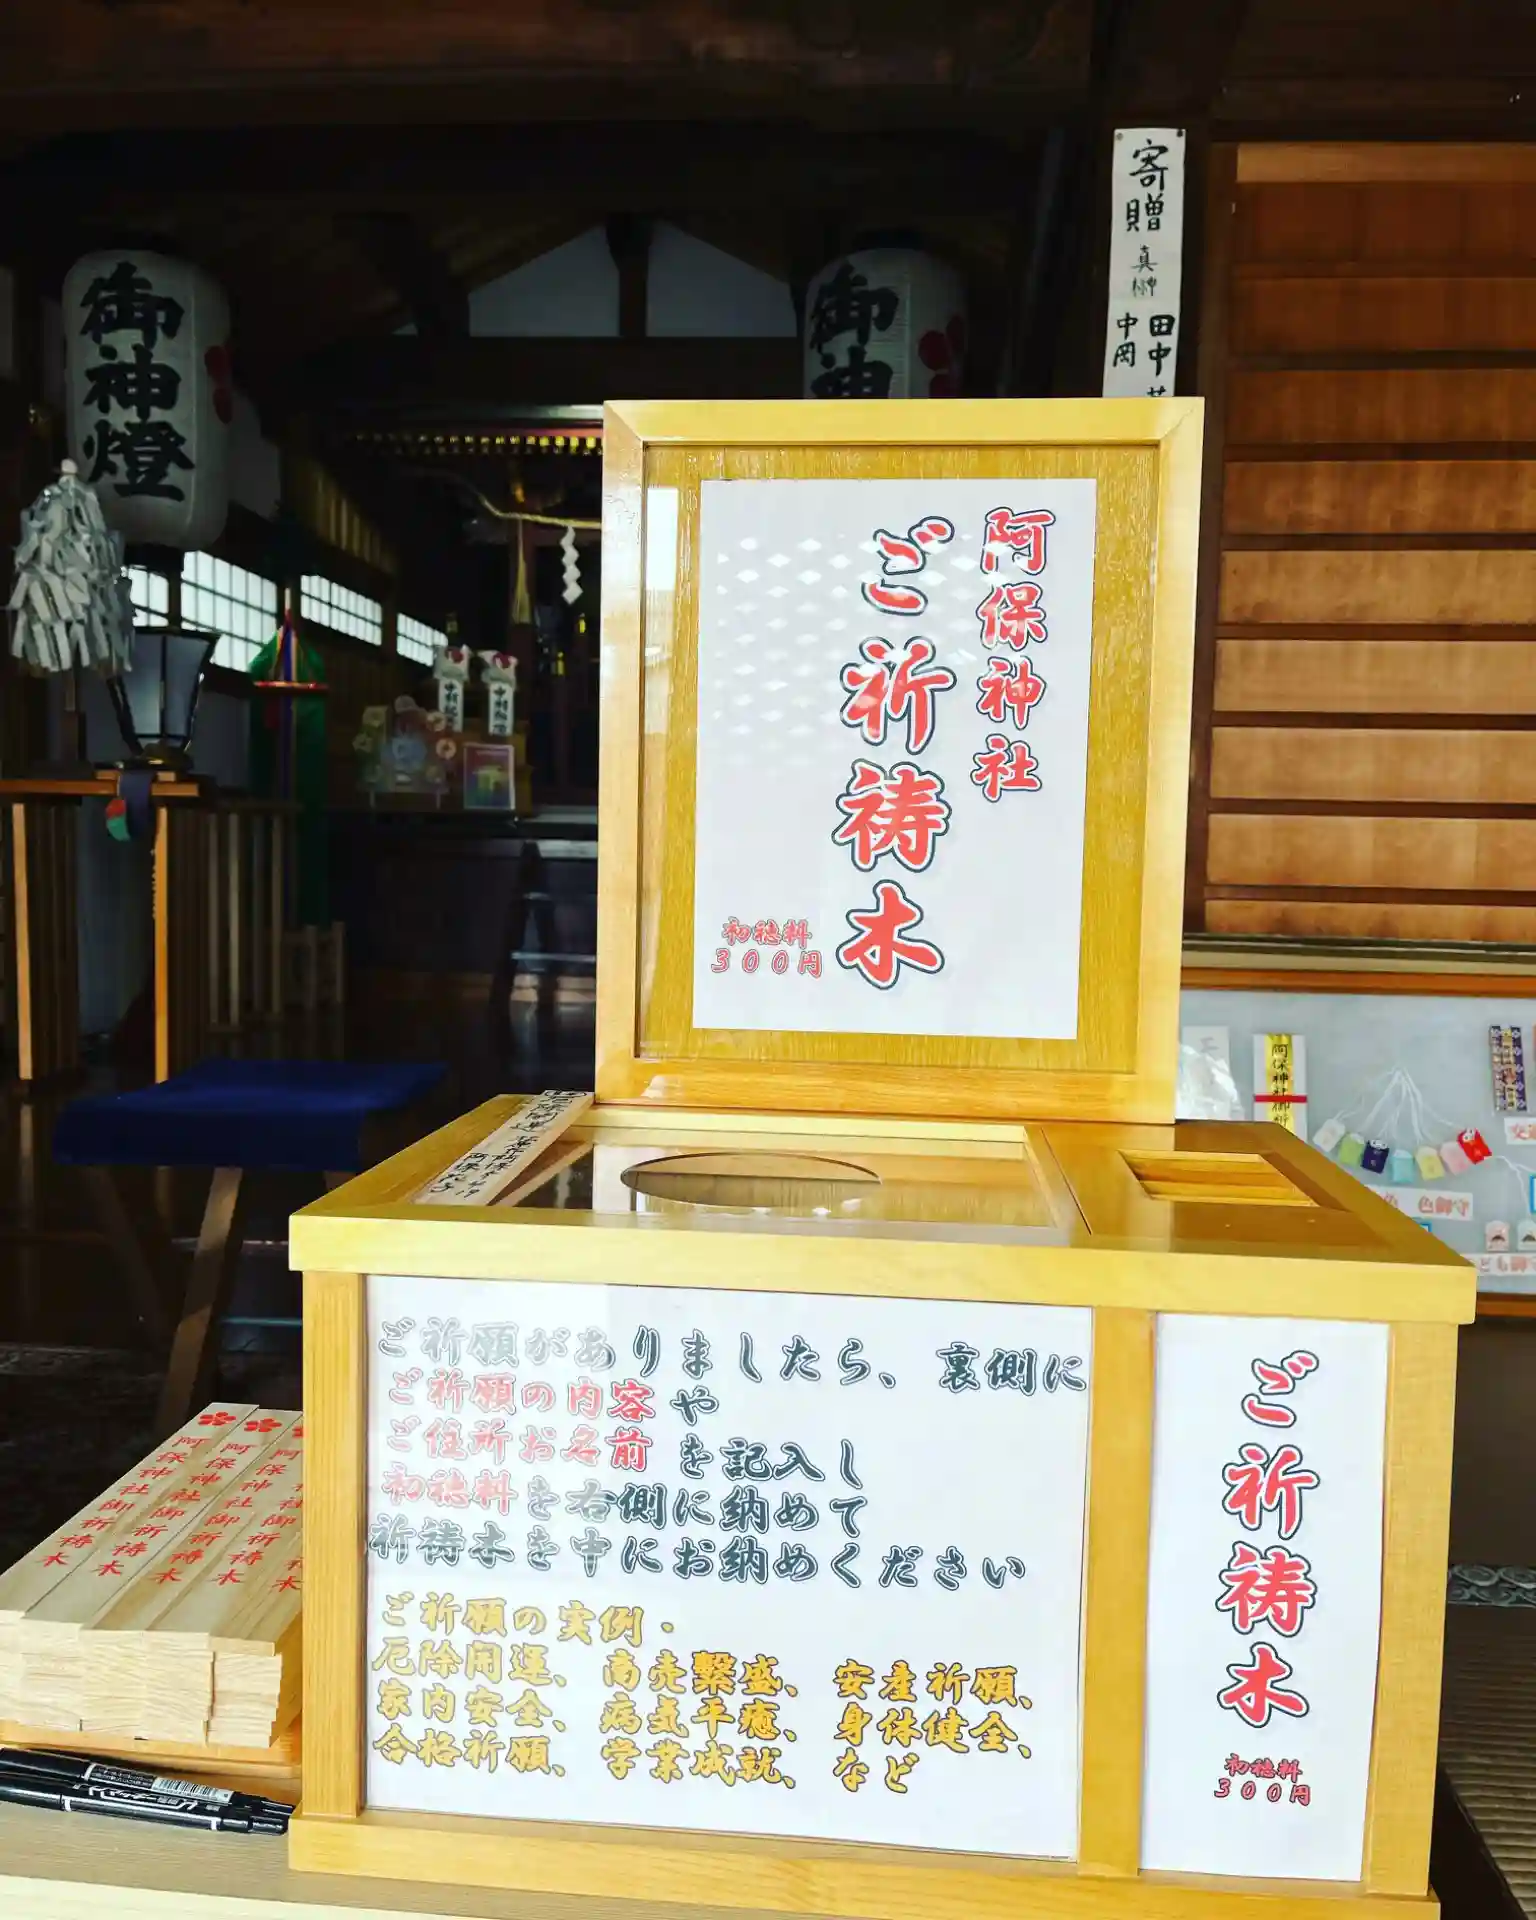 御神燈
御神
寄贈
真榊
田中
中岡
阿保神社
ご祈祷木
初穂料
300円
ご祈願がありましたら、裏側に
ご祈願の内容や
ご住所お名前を記入し
初穂料を右側に納めて
祈祷木を中にお納めください
ご祈願の実例・
厄除開運、商売繫盛、安産祈願、
家内安全、病気平癒、身体健全、
合格祈願、学業成就、など
ご祈祷木
初穂料
300円
阿保神社御祈祷木
阿保神社御祈祷木
阿保神社御祈祷木
阿保神社御祈祷木